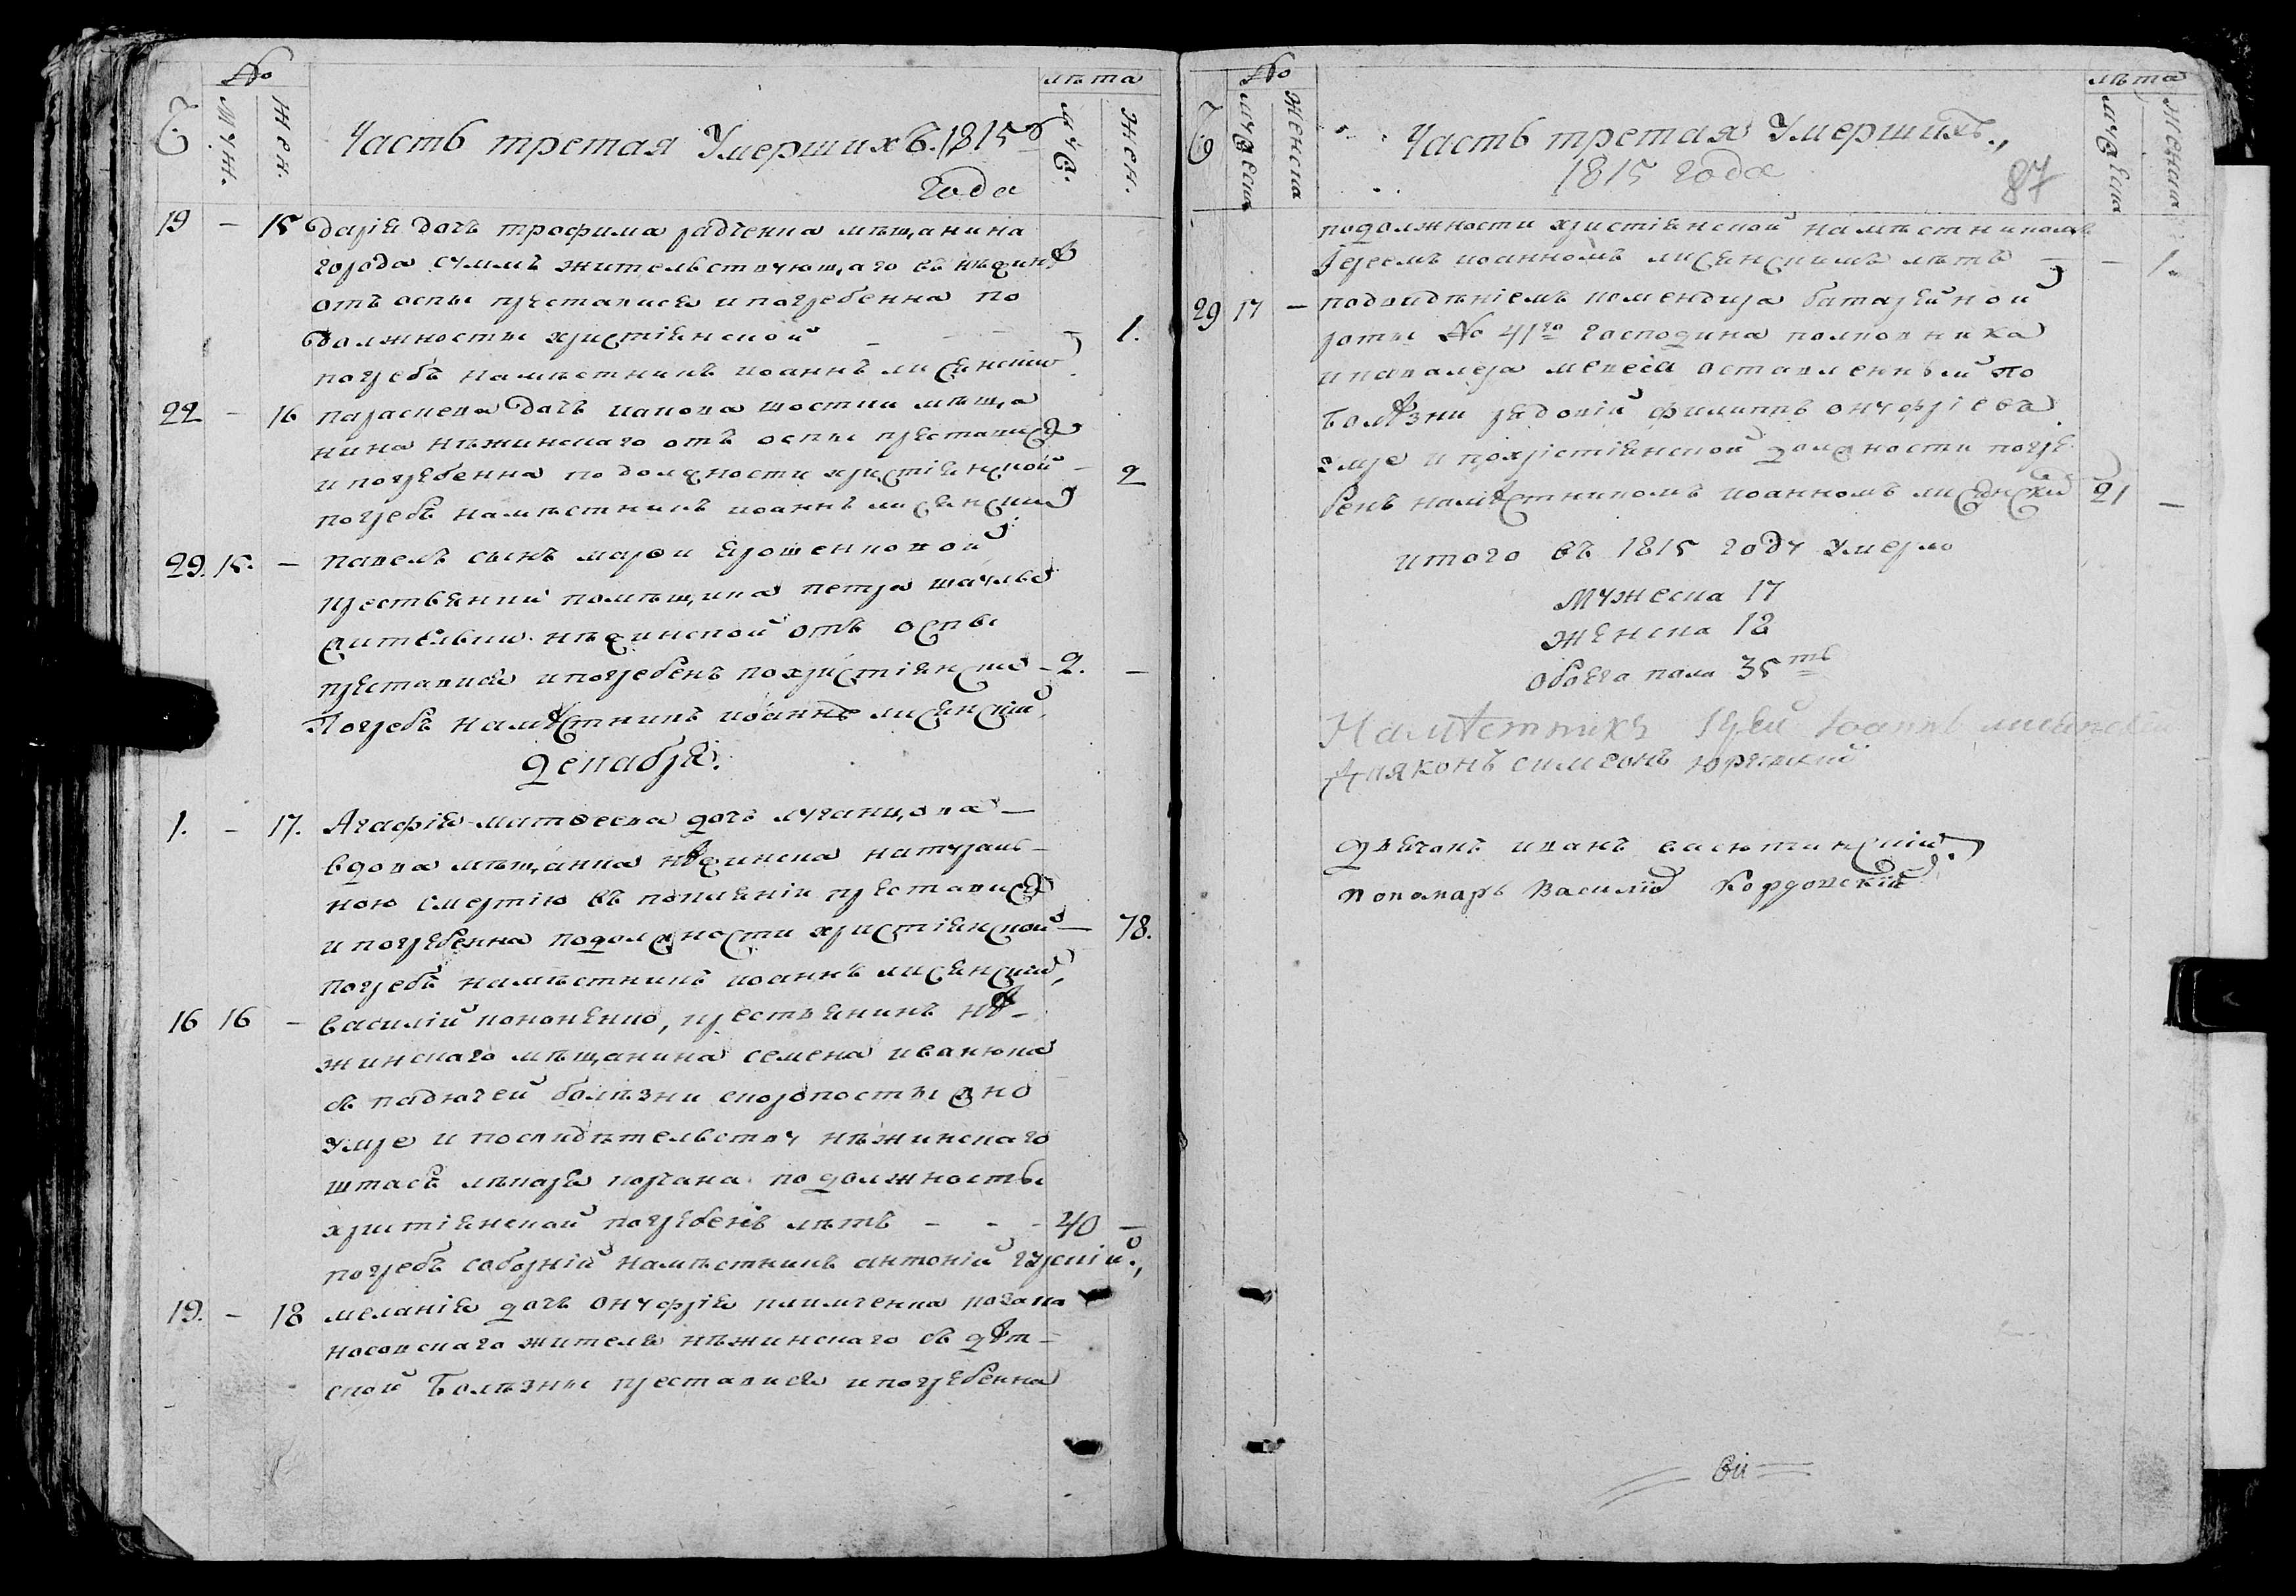 № лѣта
Муж. Жен. Муж. Жен.
Часть третая Умершихъ. 1815
года
19 – 15 дарія дочь трофима радченка мѣщанина
города сумъ жительствующаго въ нѣжинѣ
отъ оспы преставися и погребенна по
должносты христіянской – – 1.
погребъ намѣстникъ иоаннъ лисянскій
22 – 16 параскева дочь иакова мѣща
нина нѣжинскаго отъ оспы преставися
и погребенна по должности христіянской – 2
погребъ намѣстникъ иоаннъ лисянскій
29. 15. – павелъ сынъ марфи ярошенковой
крествянки помѣщика петра
жителки нѣжинской отъ оспы
преставися и погребенъ по христіянски – 2. –
Погребъ намѣстникъ иоаннъ лисянскій,
декабря.
1. – 17. Агафія матвеева дочь луганцова –
вдова мѣщанка нѣжинска натурал-
ною смертію въ покаяніи преставися
и погребенна по должности христіянской – 78.
погребъ намѣстникъ иоаннъ лисянскій,
16 16 – василій кононенко, крестянинъ нѣ-
жинскаго мѣщанина семена иванюка
въ падючей болѣзни скоропостыжно
умре и по свидѣтельству нѣжинскаго
штабъ лѣкаря по должносты
хритіянской погребенъ лѣтъ – – – 40 –
погребъ соборній намѣстникъ антоній гурскій,
19. – 18 меланія дочь онуфрія климченка козака
носовскаго жителя нѣжинскаго въ дѣт-
ской болѣзны преставися и погребенна
№ лѣта
мужеска Женска мужеска Женска
Часть третая Умершихъ.,
1815 года
87
по должности христіянской намѣстникомъ
Іереемъ иоанномъ лисянскимъ лѣтъ – – 1.
29 17 – по видѣніемъ комендира батарейной
роты № 41го господина полковника
и кавалера оставленный по
болѣзни рядовій филиппъ онуфріевъ
умре и по хрістіянской должности погре
бенъ намѣстникомъ иоанномъ лисянски 21 –
итого въ 1815 году умерло
Мужеска 17
женска 18
обоего пола 35ть
Намѣстникъ Іерей Іоаннъ лисянскій
Діяконъ симеонъ
дячокъ иванъ васютинскій.
пономарь Василій Кордовскій